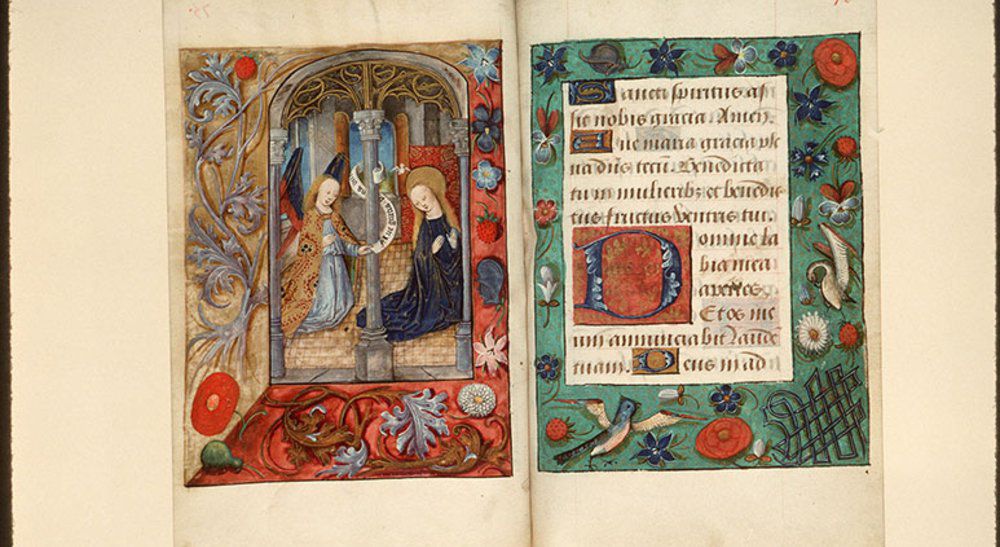 Sancti spiritus as
sit nobis gracia. Amen.
Aue maria gracia ple
na dn̄s tecū. Benedicta
tu in mulieribꝫ et benedic
tus fructus ventris tui.
Domine la
bia mea
aperies.
Et os me
um annunciabit laudē
tuam. Deus in ad